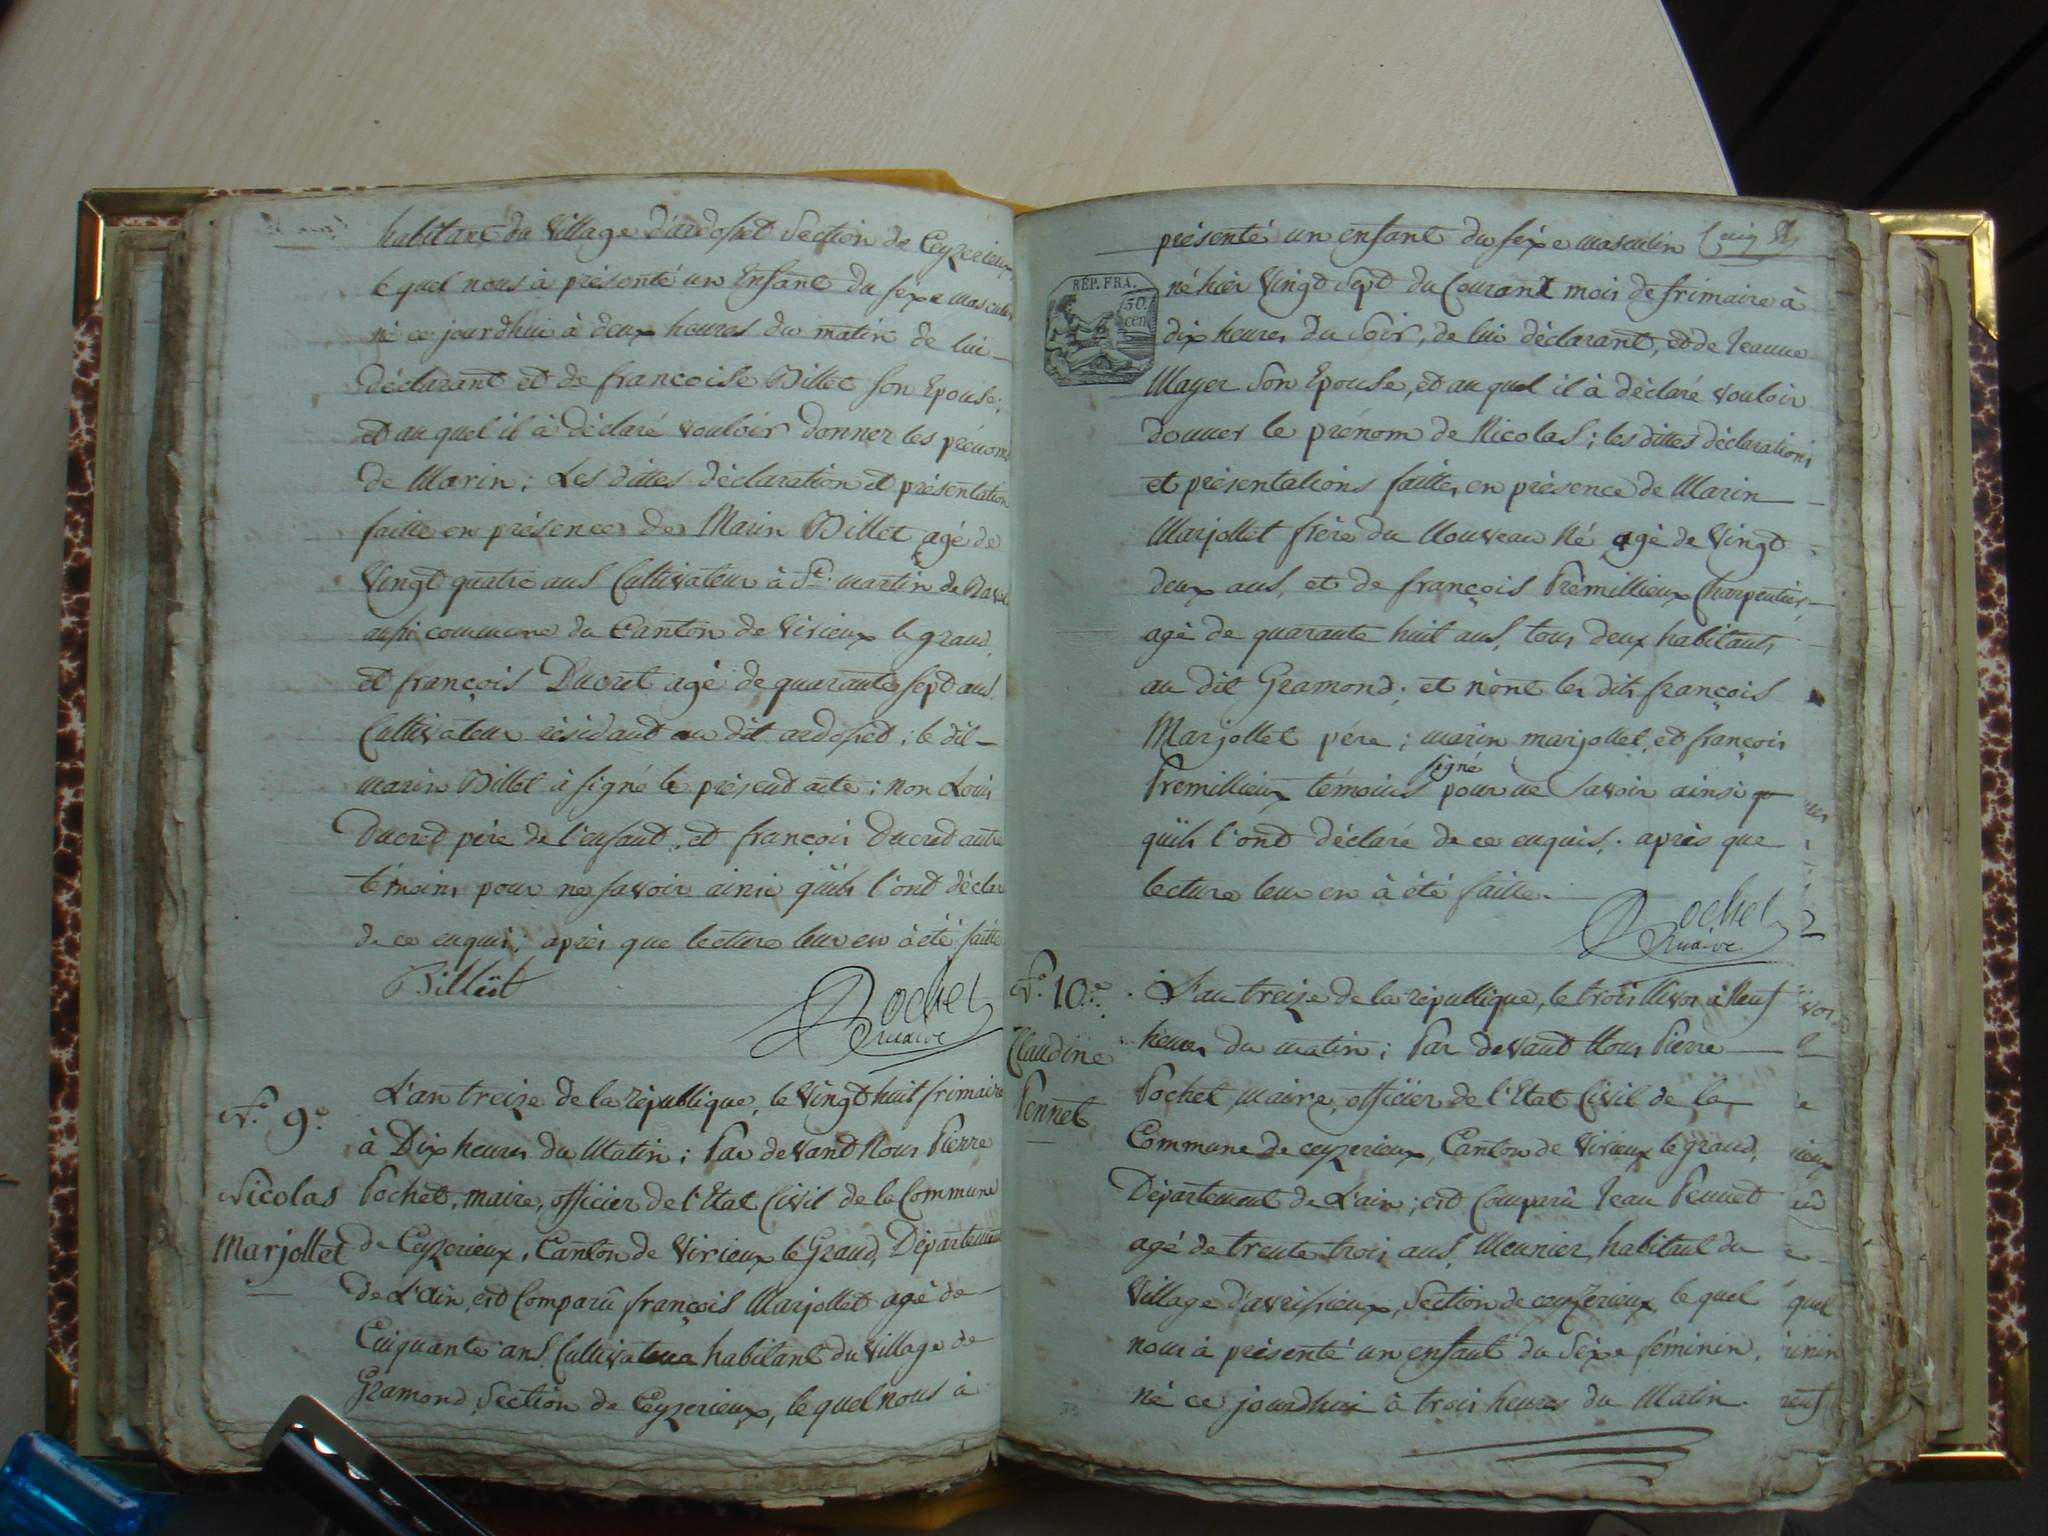 habitant du Village d'ardosset Section de Ceyzerieux,
lequel nous à présenté un Enfant du sexe masculin
né ce jourdhui à deux heures du matin de lui
déclarant et de francoise Billet son Epouse;
et au quel il à déclaré vouloir donner les prénoms
de Marin; Les dittes déclaration et présentation
faitte en présence de Marin Billet agé de
Vingt quatre ans Cultivateur à St. martin de Bavel
aussi commune du Canton de Virieux le grand,
et françois Ducret agé de quarante sept ans
Cultivateur résidant au dit ardosset; le dit
marin Billet à signé le présent acte; non Louis
Ducret père de l'enfant, et françois Ducret autre
témoins pour ne savoir ainsi quils l'ont déclaré
de ce enquis; après que lecture leur en à été faitte
Billiet
Pochet
maire
N.° 9.e
Nicolas
Marjollet
L'an treize de la république, le Vingt huit frimaire
à Dix heures du Matin; Par devant Nous Pierre
Pochet, maire, officier de l'Etat Civil de la Commune
de Ceyzerieux, Canton de Virieux le Grand, Département
de L'ain, est Comparû françois Marjollet agé de
Cinquante ans Cultivateur habitant du Village de
Gramond, Section de Ceyzerieux, le quel nous à
présenté un enfant du sexe masculin
RÉP. FRA.
50
cen
né hier Vingt sept du Courant mois de frimaire à
dix heures du Soir, de lui déclarant, et de Jeanne
Mayer Son Epouse, et au quel il à déclaré vouloir
donner le prénom de Nicolas; les dittes déclarations
et présentations faittes en présence de Marin
Marjollet frère du Nouveau Né agé de Vingt
deux ans, et de françois Prémillieux Charpentier,
agé de quarante huit ans, tous deux habitants
au dit Gramond; et n'ont les dits françois
Marjollet père; marin marjollet, et françois
Premillieux témoins signé pour ne savoir ainsi
quils l'ont déclaré de ce enquis. après que
lecture leur en à été faitte.
Pochet
maire
N.° 10.e
Claudine
Pennet
L'an treize de la république, le trois Nivos à Neuf
heures du matin; Par devant Nous Pierre
Pochet, maire, officier de l'Etat Civil de la
Commune de ceyzerieux, Canton de Virieux le grand,
Département de L'ain; est Comparû Jean Pennet
agé de trente trois ans, Meunier, habitant du
Village d'avrissieux, Section de ceyzerieux, le quel
nous à présenté un enfant du Sexe féminin,
né ce jourdhui à trois heures du Matin.